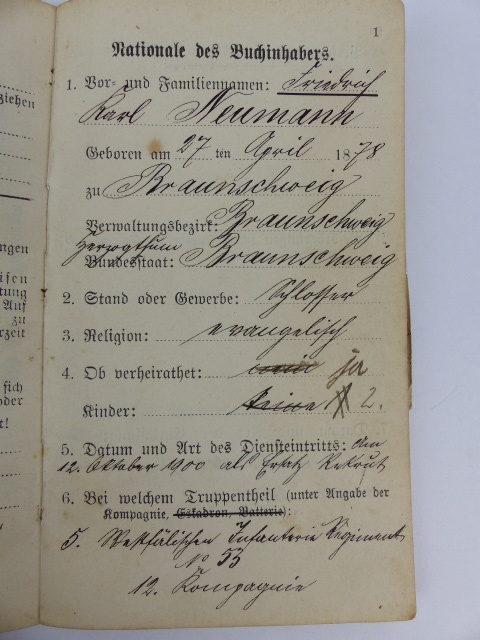 1
Nationale des Buchinhabers.
1. Vor- und Familiennamen: Friedrich
Karl Neumann
Geboren am 27 ten April 1878
zu Braunschweig
Verwaltungsbezirk: Braunschweig
Herzogthum
Bundesstaat: Braunschweig
2. Stand oder Gewerbe: Schlosser
3. Religion: evangelisch
4. Ob verheirathet: nein ja
Kinder: keine 2.
5. Datum und Art des Diensteintritts: Am
12. Oktober 1900 als Ersatz Rekrut
6. Bei welchem Truppentheil (unter Angabe der
Kompagnie, Eskadron, Batterie):
5. Westfälischen Infanterie Regiment
No 53
12. Kompagnie
ziehen
ngen
eisen
tung
Auf
zu
erzeit
sich
oder
t!